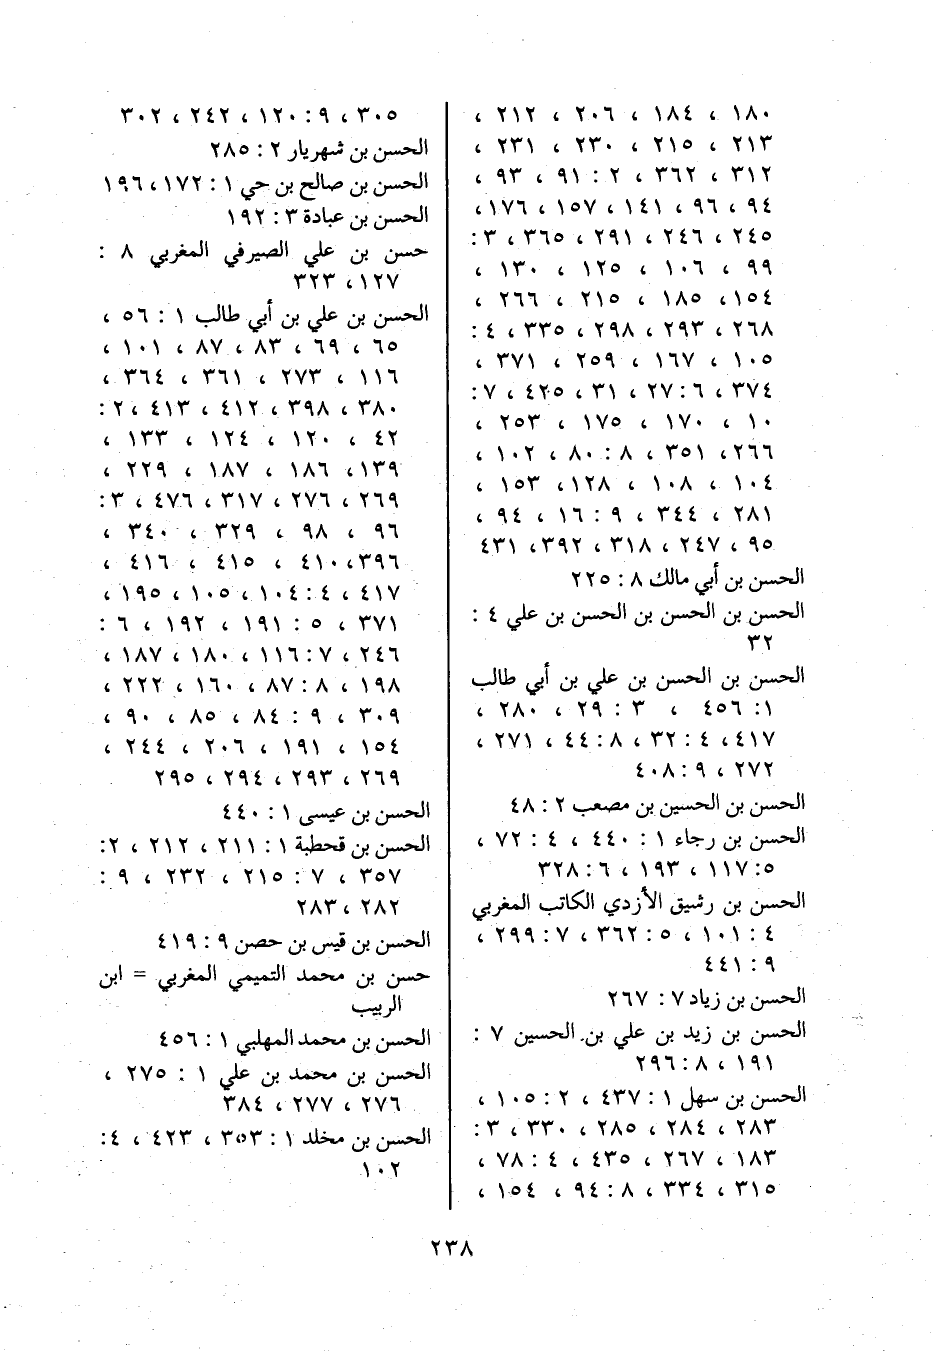 ١٨٠ ، ١٨٤ ، ٢٠٦ ، ٢١٢ ،
٢١٣ ، ٢١٥ ، ٢٣٠ ، ٢٣١ ،
٣١٢ ، ٣٦٢ ، ٢ : ٩١ ، ٩٣ ،
٩٤ ، ٩٦ ، ١٤١ ، ١٥٧ ، ١٧٦،
٢٤٥ ، ٢٤٦ ، ٢٩١ ، ٣٦٥ ، ٣ :
٩٩ ، ١٠٦ ، ١٢٥ ، ١٣٠ ،
١٥٤، ١٨٥ ، ٢١٥ ، ٢٦٦ ،
٢٦٨ ، ٢٩٣ ، ٢٩٨ ، ٣٣٥ ، ٤ :
١٠٥ ، ١٦٧ ، ٢٥٩ ، ٣٧١ ،
٣٧٤ ، ٦ : ٢٧ ، ٣١ ، ٤٢٥ ، ٧ :
١٠ ، ١٧٠ ، ١٧٥ ، ٢٥٣ ،
٢٦٦، ٣٥١ ، ٨ : ٨٠ ، ١٠٢ ،
١٠٤ ، ١٠٨ ، ١٢٨، ١٥٣ ،
٢٨١ ، ٣٤٤ ، ٩ : ١٦ ، ٩٤ ،
٩٥ ، ٢٤٧ ، ٣١٨ ، ٣٩٢، ٤٣١
الحسن بن أبي مالك ٨ : ٢٢٥
الحسن بن الحسن بن الحسن بن علي ٤ :
٣٢
الحسن بن الحسن بن علي بن أبي طالب
١ : ٤٥٦ ، ٣ : ٢٩ ، ٢٨٠ ،
٤١٧، ٤ : ٣٢ ، ٨ : ٤٤ ، ٢٧١ ،
٢٧٢ ، ٩ : ٤٠٨
الحسن بن الحسين بن مصعب ٢ : ٤٨
الحسن بن رجاء ١ : ٤٤٠ ، ٤ : ٧٢ ،
٥ : ١١٧ ، ١٩٣ ، ٦ : ٣٢٨
الحسن بن رشيق الأزدي الكاتب المغربي
٤ : ١٠١ ، ٥ : ٣٦٢ ، ٧ : ٢٩٩ ،
٩ : ٤٤١
الحسن بن زياد ٧ : ٢٦٧
الحسن بن زيد بن علي بن الحسين ٧ :
١٩١ ، ٨ : ٢٩٦
الحسن بن سهل ١ : ٤٣٧ ، ٢ : ١٠٥ ،
٢٨٣ ، ٢٨٤ ، ٢٨٥ ، ٣٣٠ ، ٣ :
١٨٣ ، ٢٦٧ ، ٤٣٥ ، ٤ : ٧٨ ،
٣١٥ ، ٣٣٤ ، ٨ : ٩٤ ، ١٥٤ ،
٣٠٥ ، ٩ : ١٢٠ ، ٢٤٢ ، ٣٠٢
الحسن بن شهريار ٢ : ٢٨٥
الحسن بن صالح بن حي ١ : ١٧٢ ، ١٩٦
الحسن بن عبادة ٣ : ١٩٢
حسن بن علي الصيرفي المغربي ٨ :
١٢٧ ، ٣٢٣
الحسن بن علي بن أبي طالب ١ : ٥٦ ،
٦٥ ، ٦٩ ، ٨٣ ، ٨٧ ، ١٠١ ،
١١٦ ، ٢٧٣ ، ٣٦١ ، ٣٦٤ ،
٣٨٠ ، ٣٩٨ ، ٤١٢ ، ٤١٣ ، ٢ :
٤٢ ، ١٢٠ ، ١٢٤ ، ١٣٣ ،
١٣٩، ١٨٦ ، ١٨٧ ، ٢٢٩ ،
٢٦٩ ، ٢٧٦ ، ٣١٧ ، ٤٧٦ ، ٣ :
٩٦ ، ٩٨ ، ٣٢٩ ، ٣٤٠ ،
٣٩٦، ٤١٠ ، ٤١٥ ، ٤١٦ ،
٤١٧ ، ٤ : ١٠٤ ، ١٠٥ ، ١٩٥ ،
٣٧١ ، ٥ : ١٩١ ، ١٩٢ ، ٦ :
٢٤٦ ، ٧ : ١١٦ ، ١٨٠ ، ١٨٧ ،
١٩٨ ، ٨ : ٨٧ ، ١٦٠ ، ٢٢٢ ،
٣٠٩ ، ٩ : ٨٤ ، ٨٥ ، ٩٠ ،
١٥٤ ، ١٩١ ، ٢٠٦ ، ٢٤٤ ،
٢٦٩ ، ٢٩٣ ، ٢٩٤ ، ٢٩٥
الحسن بن عيسى ١ : ٤٤٠
الحسن بن قحطبة ١ : ٢١١ ، ٢١٢ ، ٢ :
٣٥٧ ، ٧ : ٢١٥ ، ٢٣٢ ، ٩ :
٢٨٢ ، ٢٨٣
الحسن بن قيس بن حصن ٩ : ٤١٩
حسن بن محمد التميمي المغربي = ابن
الربيب
الحسن بن محمد المهلبي ١ : ٤٥٦
الحسن بن محمد بن علي ١ : ٢٧٥ ،
٢٧٦ ، ٢٧٧ ، ٣٨٤
الحسن بن مخلد ١ : ٣٥٣ ، ٤٢٣ ، ٤ :
١٠٢
٢٣٨